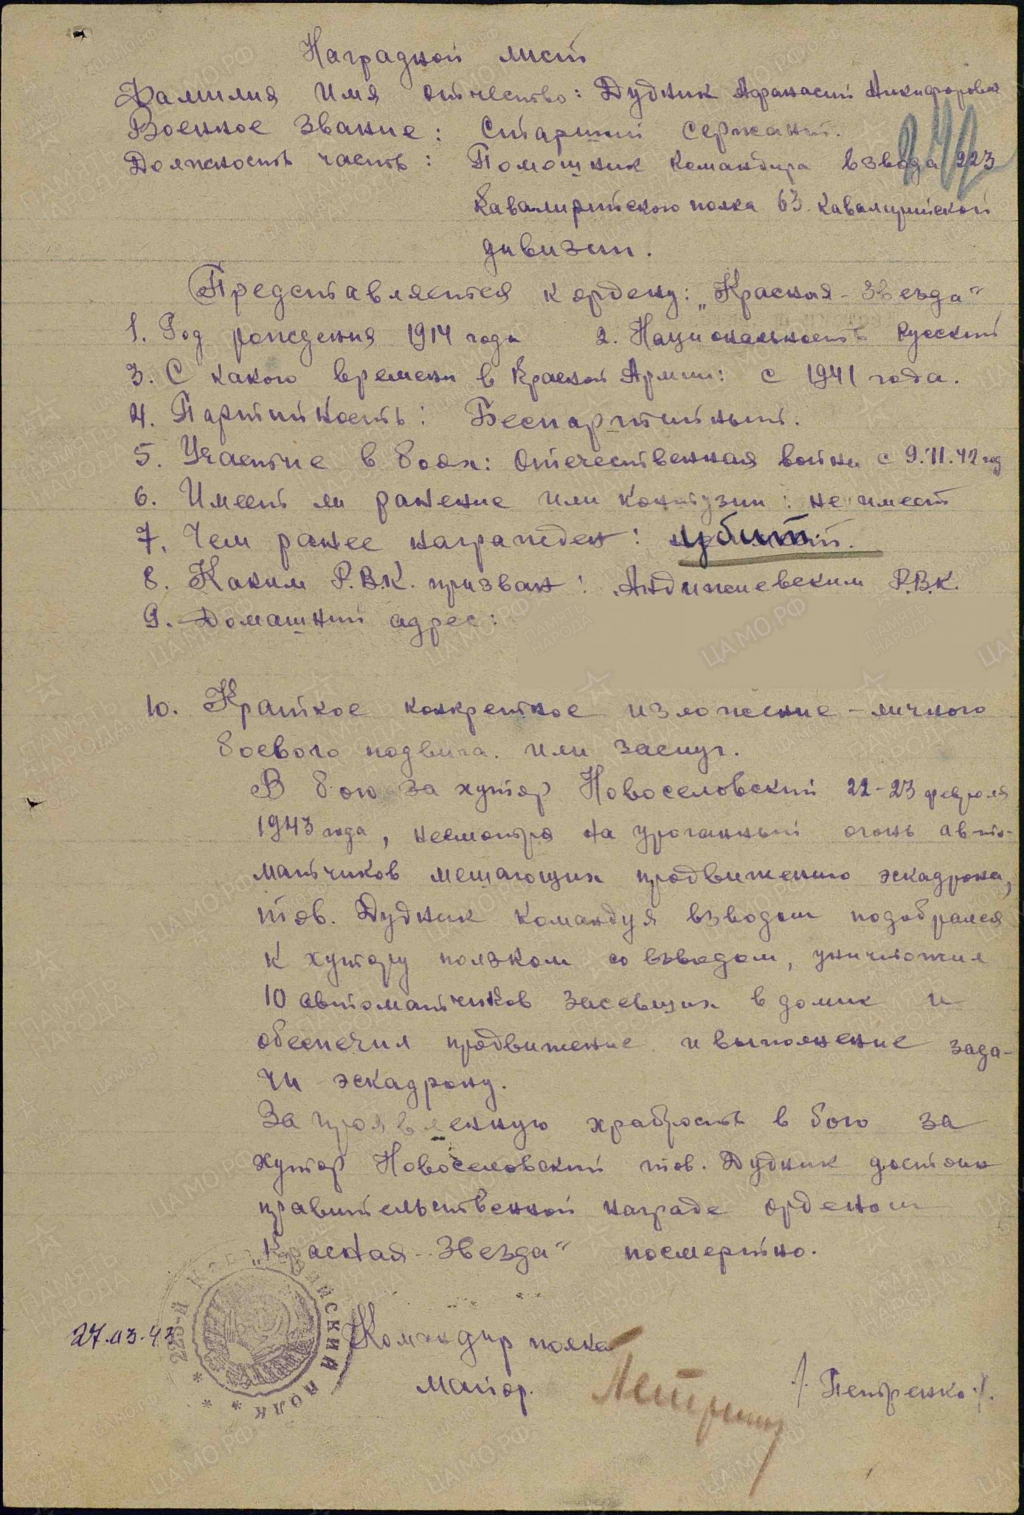 Наградной лист
Фамилия Имя отчество: Дудник Афанасий Никифорович
Военное звание: Старший сержант.
Должность часть: Помошник командира взвода 223
Кавалирийского полка 63 кавалирийской
дивизии.
Представляется к ордену: „Красная-Звезда"
1. Год рождения 1914 года 2. Национальность Русский
3. С какого времени в Красной Армии: с 1941 года.
4. Партийность: Беспартийный.
5. Участие в боях: Отечественная война с 9.11.42 год
6. Имеет ли ранение или контузии: не имеет
7. Чем ранее награжден: убит.
8. Каким Р.В.К. призван: Андижневским Р.В.К.
9. Домашний адрес:
10. Краткое конкретное изложение-личного
боевого подвига или заслуг.
В бою за хутор Новоселовский 22-23 февраля
1943 года, несмотря на ураганный огонь авто-
матчиков мешающих продвижению эскадрона,
тов. Дудник командуя взводом подобрался
к хутору ползком со взводом, уничтожил
10 автоматчиков засевших в домик и
обеспечил продвижение и выполнение зада-
чи эскадрону.
За проявленную храбрость в бою за
хутор Новоселовский тов. Дудник достоин
правительственной награде орденом
„Красная-Звезда" посмертно.
27.03.43 Командир полка
майор. /Петренко/.
223-й Кавалерийский полк